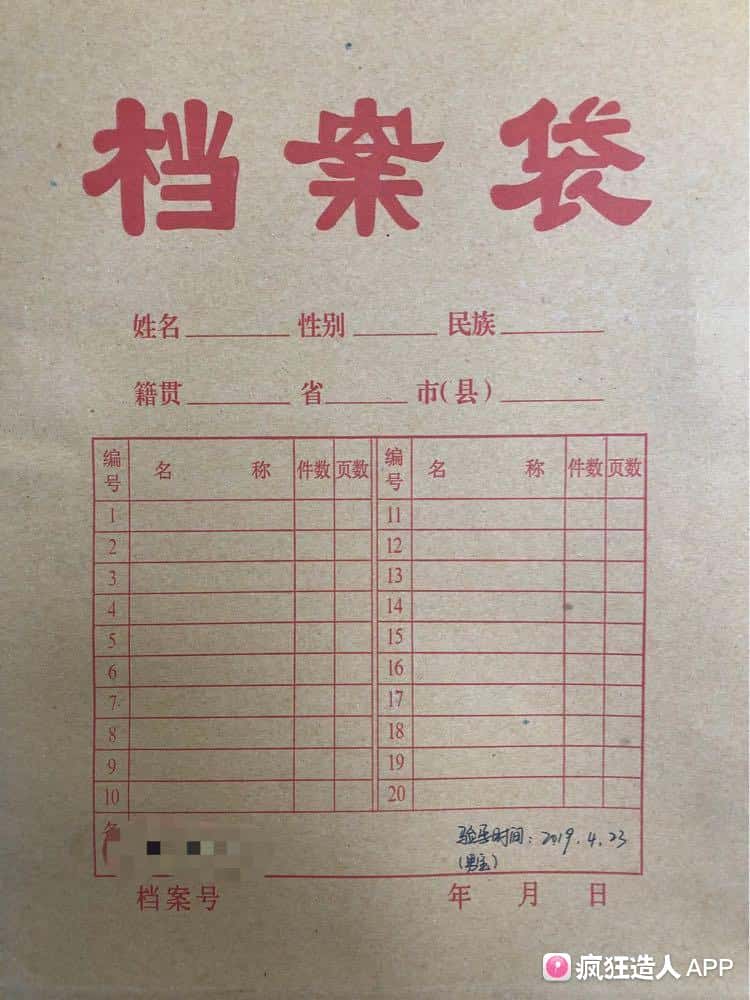 档案袋
姓名 性别 民族
籍贯 省 市(县)
编号 名 称 件数 页数 编号 名 称 件数 页数
1 11
2 12
3 13
4 14
5 15
6 16
7 17
8 18
9 19
10 20
验孕时间：2019.4.23
(男宝)
档案号 年 月 日
疯狂造人 APP